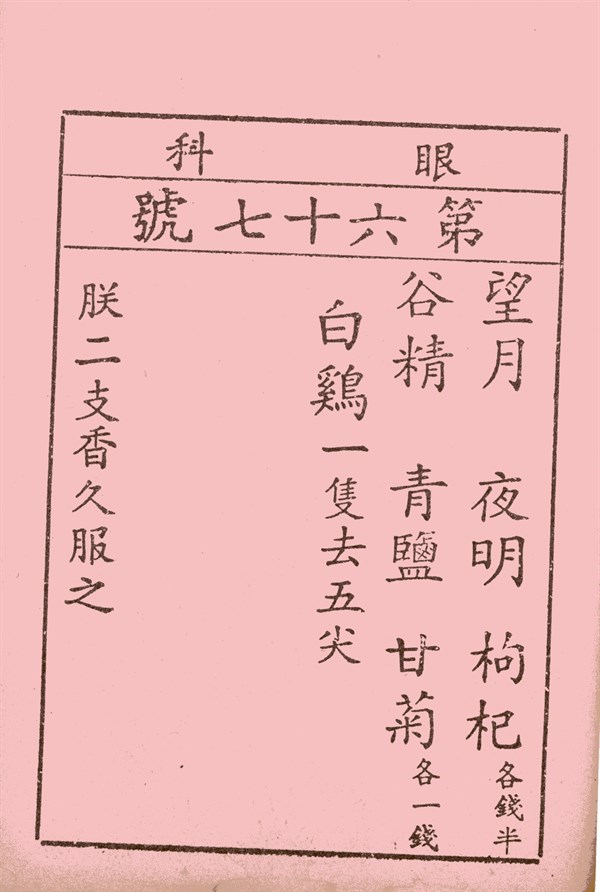 眼科
第六十七號
望月 夜明 枸杞各錢半
谷精 青鹽 甘菊各一錢
白鷄一隻去五尖
朕二支香久服之